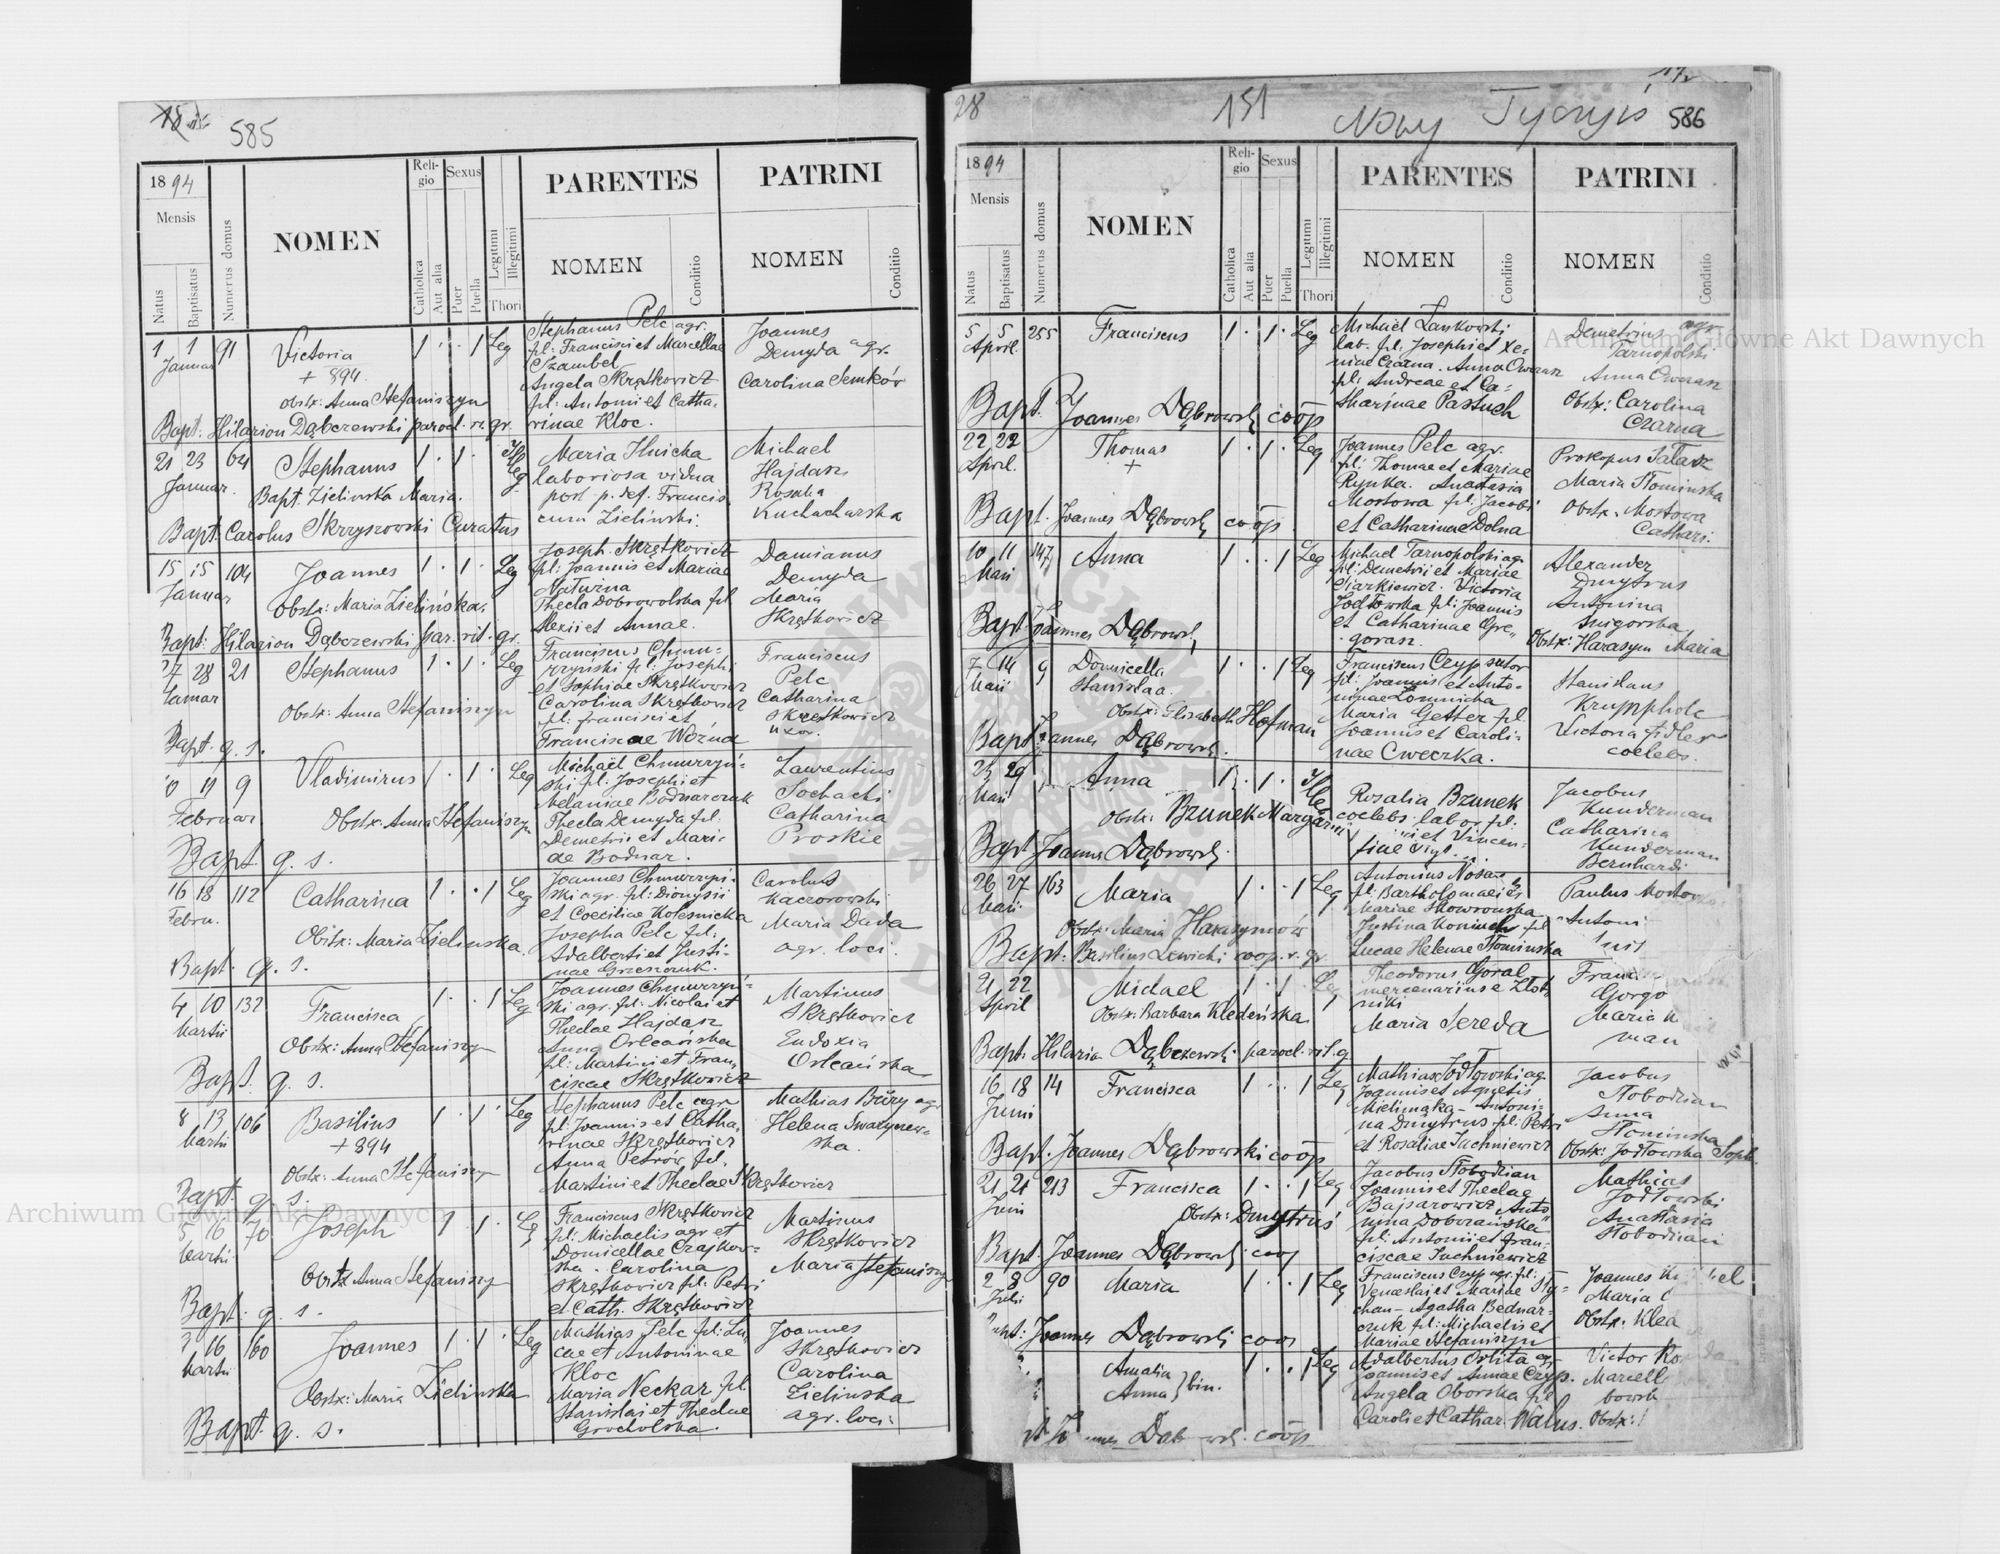 585
1894
Mensis
Natus
Baptisatus
Numerus domus
NOMEN
Religio
Catholica
Aut alia
Sexus
Puer
Puella
Legitimi
Illegitimi
Thori
PARENTES
NOMEN
Conditio
PATRINI
NOMEN
Conditio
1 1 91 Victoria 1 . . 1 Leg
Januar
+ 894.
Obstx: Anna Stefaniszyn
Bapt. Hilarion Dąbczewski paroch. r. gr.
Stephanus Pelc agr.
fil: Francisci et Marcellae
Szambel
Angela Skrętkowicz
fil: Antonii et Catha-
rinae Kloc.
Joannes
Demyda agr.
Carolina Semków
21 23 64 Stephanus 1 . 1 . Illeg
Januar.
Bapt. Zielinska Maria.
Bapt. Carolus Skrzyszowski Curatus
Maria Hnicka
laboriosa vidua
post p. def. Francis
cum Zielinski.
Michael
Hajdasz
Rosalia
Kucharska
15 15 104 Joannes 1 . 1 . Leg
Januar
Obstx: Maria Zielińska.
Bapt: Hilarion Dąbczewski par. rit. gr.
Joseph Skrętkowicz
fil: Joannis et Mariae
Maturna
Thecla Dobrowolska fil
Alexii et Annae.
Damianus
Demyda
Maria
Skrętkowicz
27 28 21 Stephanus 1 . 1 . Leg
Januar
Obstx: Anna Stefaniszyn
Bapt. q. s.
Franciscus Chmu-
rzyński fil: Josephi
et Sophiae Skrętkowicz
Carolina Skrętkowicz
fil: Francisci et
Franciscae Woźna
Franciscus
Pelc
Catharina
Skrętkowicz
uxor.
10 19 9 Vladimirus 1 . 1 . Leg
Februar
Obstx: Anna Stefaniszyn
Bapt. q. s.
Michael Chmurzyń-
ski fil: Josephi et
Melaniae Bodnarczuk
Thecla Demyda fil.
Demetrii et Mari-
ae Bodnar.
Laurentius
Sochacki
Catharina
Proskie
16 18 112 Catharina 1 . . 1 Leg
Febru.
Obstx: Maria Zielinska
Bapt. q. s.
Joannes Chmurzyń-
ski agr. fil: Dionysii
et Coeciliae Kolesnicka
Josepha Pelc fil:
Adalberti et Justi-
nae Grzesczuk.
Carolus
Kaczorowski
Maria Dada
agr. loci.
4 10 132 Francisca 1 . . 1 Leg
Martii
Obstx: Anna Stefaniszyn
Bapt. q. s.
Joannes Chmurzyń-
ski agr. fil: Nicolai et
Theclae Hajdasz
Anna Orleańska
fil: Martini et Fran-
ciscae Skrętkowicz
Martinus
Skrętkowicz
Eudoxia
Orleańska
8 13 106 Basilius 1 . 1 . Leg
Martii
+ 894
Obstx: Anna Stefaniszyn
Bapt. q. s.
Stephanus Pelc agr.
fil: Joannis et Catha-
rinae Skrętkowicz
Anna Petrów fil.
Martini et Theclae Skrętkowicz
Mathias Büry agr
Helena Swarynew-
ska.
5 16 70 Joseph 1 . 1 . Leg
Martii
Obstx Anna Stefaniszyn
Bapt. q. s.
Franciscus Skrętkowicz
fil: Michaelis agr et
Domicellae Czajkow-
ska. Carolina
Skrętkowicz fil: Petri
et Cath. Skrętkowicz
Martinus
Skrętkowicz
Maria Stefaniszyn
16 160 Joannes 1 . 1 . Leg
Martii
Obstx: Maria Zielinska
Bapt. q. s.
Mathias Pelc fil: Lu-
cae et Antoninae
Kloc
Maria Neckar fil.
Stanislai et Theclae
Grocholska.
Joannes
Skrętkowicz
Carolina
Zielinska
agr. loci.
28
151
Nowy Tyczyń
586
1894
Mensis
Natus
Baptisatus
Numerus domus
NOMEN
Religio
Catholica
Aut alia
Sexus
Puer
Puella
Legitimi
Illegitimi
Thori
PARENTES
NOMEN
Conditio
PATRINI
NOMEN
Conditio
5 5 255 Franciscus 1 . 1 . Leg
April.
Bapt. Joannes Dąbrowski coop
Michael Lankowski
lab. fil. Josephi et Xe-
niae Czarna. Anna Owcrasz
fil: Andreae et Ca-
tharinae Pastuch
Demetrius agr
Tarnopolski
Anna Owcrasz
Obstx: Carolina
Czarna
22 22 Thomas 1 . 1 . Leg
April.
+
Bapt. Joannes Dąbrowski coop
Joannes Pelc agr.
fil: Thomae et Mariae
Rynka. Anastasia
Mostowa fil: Jacobi
et Catharinae Dolna
Prokopus Tatarz
Maria Słominska
Obstx: Mostowa
Cathari.
10 11 147 Anna 1 . . 1 Leg
Maii
Bapt. Joannes Dąbrowski
Michael Tarnopolski ag.
fil: Demetrii et Mariae
Siarkiewicz. Victoria
Jodłowska fil: Joannis
et Catharinae Gre-
goraz.
Alexander
Dmytrus
Antonina
Snigorska
Obstx: Harasym Maria
7 14 9 Domicella 1 . . 1 Leg
Maii
Stanislaa.
Obstx: Elisabeth Hofman
Bapt. Joannes Dąbrowski.
Franciscus Czyp sutor
fil: Joannis et Anto-
ninae Lomnicka
Maria Getter fil.
Joannis et Caroli-
nae Cweczka.
Stanislaus
Krumphole
Victoria Fidler
coelebs.
25 29 Anna 1 . 1 . Illeg
Maii
Obstx: Bzunek Margar
Bapt Joannes Dąbrowski.
Rosalia Bzunek
coelebs labor fil:
et Vincen-
tiae Vigt
Jacobus
Kunderman
Catharina
Kunderman
Bernhardi
26 27 163 Maria 1 . . 1 Leg
Maii
Obstx: Maria Harasymów
Bapt: Basilius Lewicki coop. r. gr.
Antonius Nosas
fil: Bartholomaei et
Mariae Skowronska
Justina Koniuch fil
Lucae Helenae Słominska
Paulus
Antoni
21 22 Michael 1 . 1 . Leg
April
Obstx: Barbara Kledeńska
Bapt. Hilario Dąbczewski paroch. rit. g.
Theodorus Goral
mercenarius e Złot-
niki
Maria Sereda
Franc
Gorgo
Maria
man
16 18 14 Francisca 1 . . 1 Leg
Junii
Bapt. Joannes Dąbrowski coop
Mathias Jodłowski ag.
Joannis et Agnetis
Mielimaka - Antoni-
na Dmytrus fil: Petri
et Rosaliae Jachniewicz
Jacobus
Słobodzian
Anna
Słominska
Obstx: Jodłowska Soph.
21 21 213 Francisca 1 . . 1 Leg
Junii
Obstx: Dmytruś
Bapt. Joannes Dąbrowski coop
Jacobus Słobodzian
Joannis et Theclae
Bajsarowicz Anto-
nina Dobrzańska
fil: Antonii et Fran-
ciscae Jachniewicz
Mathias
Jodłowski
Anastasia
Słobodzian
2 8 90 Maria 1 . . 1 Leg
Julii
Bapt: Joannes Dąbrowski coop
Franciscus Czyp agr. fil:
Venceslai et Mariae Sty-
chan - Agatha Bednar-
czuk fil: Michaelis et
Mariae Stefaniszyn
Joannes
Maria
Obstx: Klea
Amalia } bin. 1 . . 1 Leg
Anna
Dąbrowski coop
Adalbertus Orlita agr
Joannis et Annae Czyp.
Angela Oborska fil
Caroli et Cathar. Walus.
Victor
Marcell
Obstx:
Archiwum Główne Akt Dawnych
Archiwum Główne Akt Dawnych